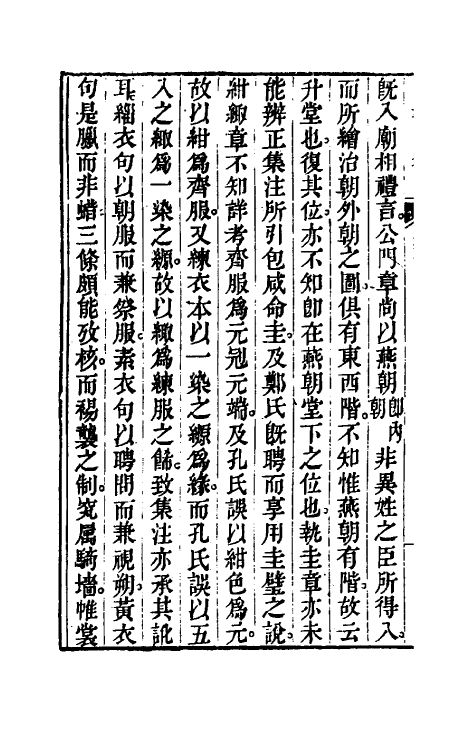 既入廟相禮言公門章尚以燕朝卽內朝非異姓之臣所得入
而所繪治朝外朝之圖俱有東西階不知惟燕朝有階故云
升堂也復其位亦不知卽在燕朝堂下之位也執圭章亦未
能辨正集注所引包咸命圭及鄭氏旣聘而享用圭璧之說
紺緅章不知詳考齊服爲元冠元端及孔氏誤以紺色爲元
故以紺爲齊服又練衣本以一染之縓爲緣而孔氏誤以五
入之緅爲一染之縓故以緅爲練服之飾致集注亦承其訛
耳緇衣句以朝服而兼祭服素衣句以聘問而兼視朔黃衣
句是臘而非蜡三條頗能攷核而裼襲之制究属騎墻帷裳